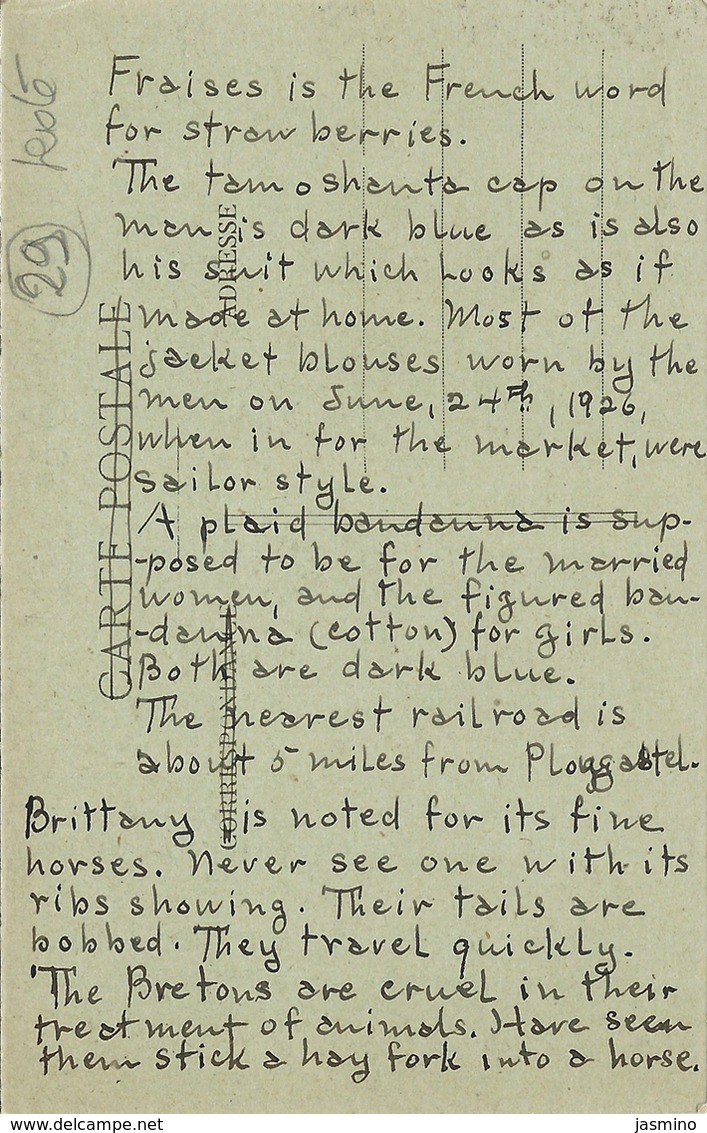 Fraises is the French word
for straw berries.
The tamoshanta cap on the
man is dark blue as is also
his suit which looks as if
made at home. Most of the
jacket blouses worn by the
men on June, 24th, 1926,
when in for the market, were
sailor style.
A plaid bandanna is sup-
-posed to be for the married
women, and the figured ban-
-danna (cotton) for girls.
Both are dark blue.
The nearest railroad is
about 5 miles from Plougastel.
Brittany is noted for its fine
horses. Never see one with its
ribs showing. Their tails are
bobbed. They travel quickly.
The Bretons are cruel in their
treatment of animals. Have seen
them stick a hay fork into a horse.
CARTE POSTALE
CORRESPONDANCE
ADRESSE
29
www.delcampe.net
jasmino